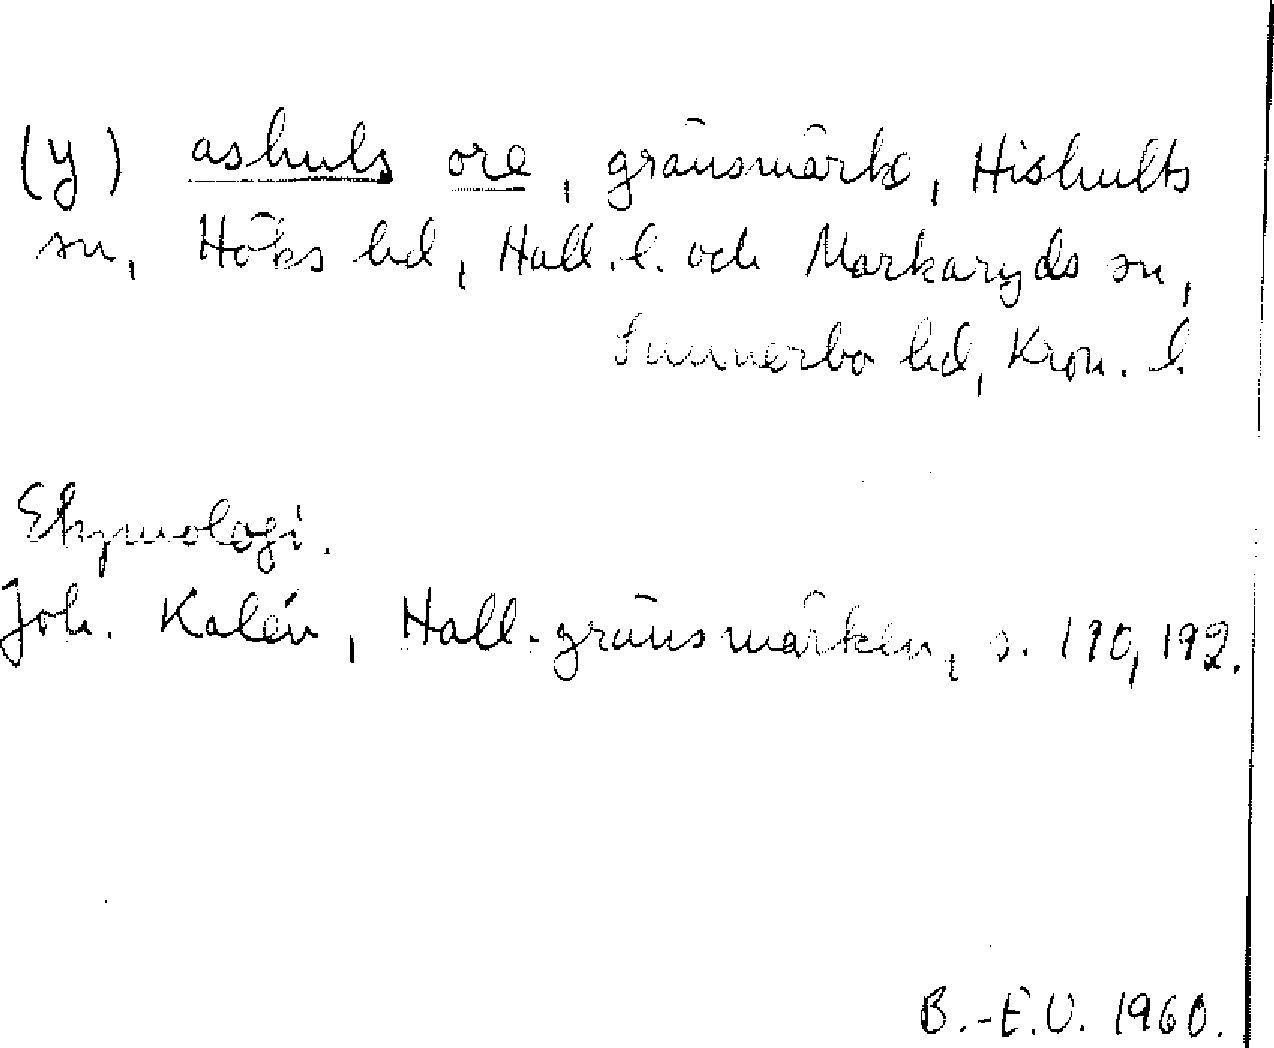 (y) ashuls ore, gränsmärke, Hishults
sn, Höks hd, Hall. l. och Markaryds sn,
Sunnerbo hd, Kron. l.
Etymologi.
Joh. Kalén, Hall. gränsmärken, s. 190, 192.
B.-E.U. 1960.